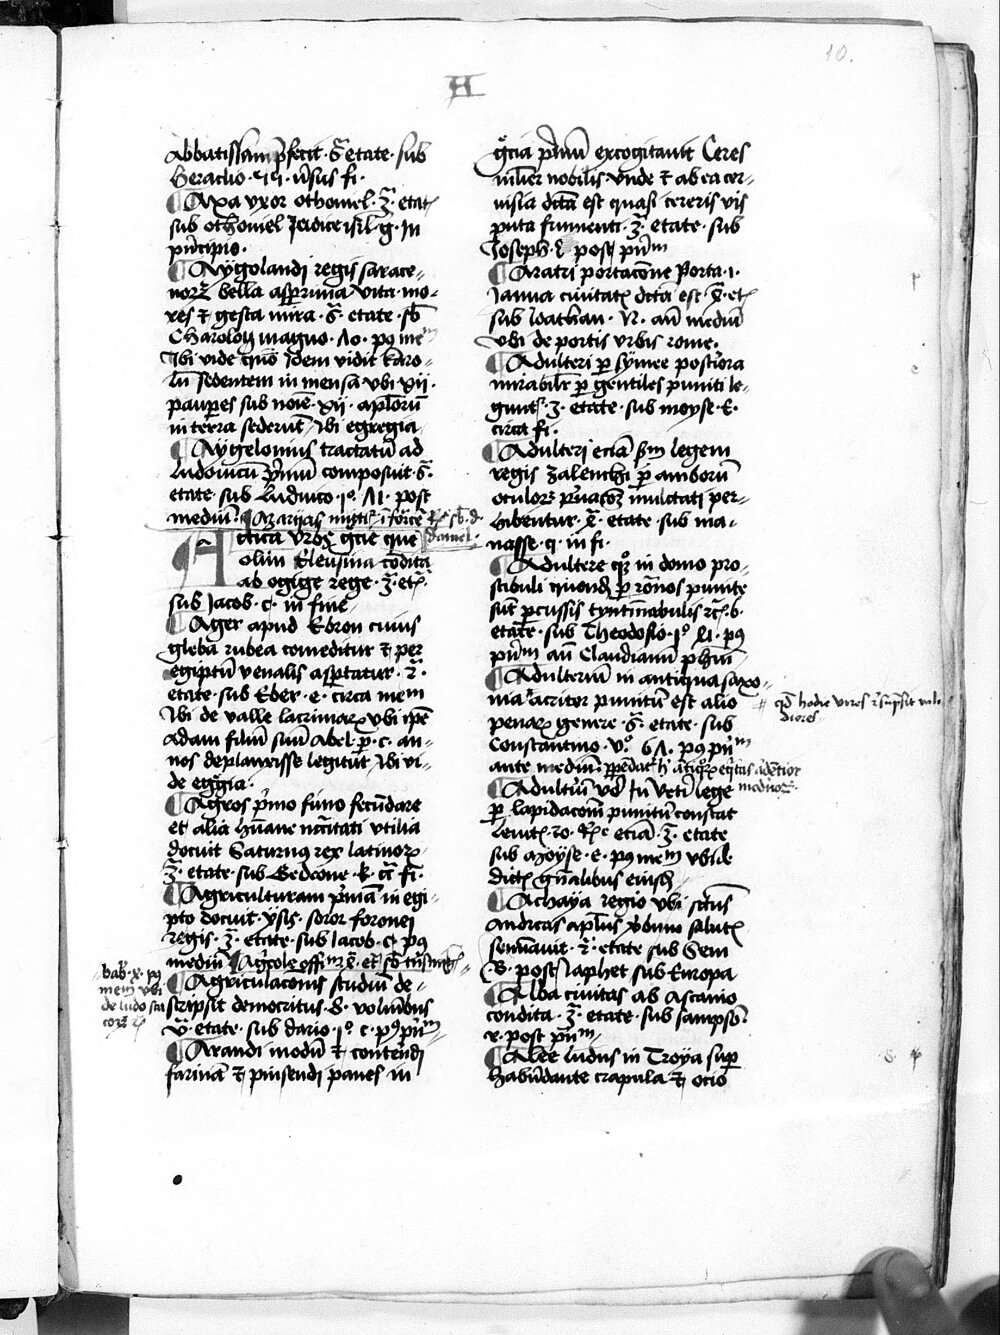 10.
A
abbatissam p̄fecit · 6̄ etate · sub
heraclio · usus fi ·
¶ Axa uxor othoniel · 3̄ · etat
sub othoniel Judice isrl · g · In
principio ·
¶ Aygolandi regis sarace-
norum bella asperrima vita · mo-
res et gesta mira · 6̄ · etate · sb
Charolo magno · 10 · pꝰ me
Ibi vide quō Idem vidit karo-
lū sedentem in mensa ubi xii ·
pauperes sub noīe · xii · aplōrum
in terra sederūt Ibi egregia
¶ Aygelonius tractatū ad
Ludovicū primū composuit · 6̄ ·
etate · sub Luduico · 1º · 11 · post
mediū · ¶ Azarias
daniel ·
Actica urbs grecie que
olim Eleusina condita
ab ogige rege · 3̄ · etate
sub Jacob · c · in fine
¶ Ager apud Ebron cuius
gleba rubea comeditur et per
egiptum venalis asportatur · 2̄ ·
etate · sub Eber · e · circa mem
Ibi de valle lacrimarum ubi ipe
Adam filiū suū Abel p · c · an-
nos deplanxisse legitur Ibi vi-
de egregia ·
¶ Agros primo fimo fecundare
et alia humane necessitati utilia
docuit Saturnus rex latinorum
3̄ · etate · sub Gedeone · k · cā fi ·
¶ Agriculturam primā in egi-
pto docuit · ysis · soror foronei
regis · 3̄ · etate · sub Jacob · c · pꝰ
mediū ¶ Agricole
¶ Agriculaconis studium de-
scripsit democritus · 8 · volumibus
5̄ · etate · sub dario · 1º · c · pꝰ pum
¶ Arandi modū et conterendi
farinā et pinsendi panes in
bab · x · pꝰ
mem ubi
de ludo sca
corum
grecia primū excogitavit Ceres
mulier nobilis unde et ab ea cer-
visia dicta est quasi cereris vis
puta frumenti · 3̄ · etate · sub
Joseph · post pum
¶ Aratri portacōne Porta · i ·
Janua civitatis dicta est · etate
sub Joathan · N · an mediū
ubi de portis urbis rome ·
¶ Adulteri per synee postiora
mirabiliter per gentiles puniti le-
guntur · 3̄ · etate · sub moyse · E ·
circa fi ·
¶ Adulteri eciā sm legem
regis Zalenchi per amborum
oculorum privacōem mulctati per-
hibentur · etate · sub ma-
nasse · q · in fi ·
¶ Adultere quo in domo pro-
stibuli quondam per romos punite
sūt percussis tyntinnabulis · 6 ·
etate · sub Theodosio · 1º · pꝰ
pum an Claudianū phm
¶ Adulterium in antiqua saxo-
nia acrior punitū est alio
penarum genere · 6̄ etate · sub
Constantino · pꝰ pum
ante mediū ·
¶ Adulterū vero In veteri lege
per lapidacōem punitū constat
Levit · 20 · etiā · 3̄ · etate
sub Moyse · E · pꝰ mem ubi de
dictis generalibus eiusdem
¶ Achaya regio ubi · sctus
Andreas aplus verbum salutis
seminavit · 2̄ · etate sub Sem
B · post Japhet sub Europa
¶ Alba civitas ab Ascanio
condita · 3̄ · etate · sub sampson ·
r · post pum ·
¶ Alee ludus in Troya super
habundante crapula et ocio
qd hodie viros
diores